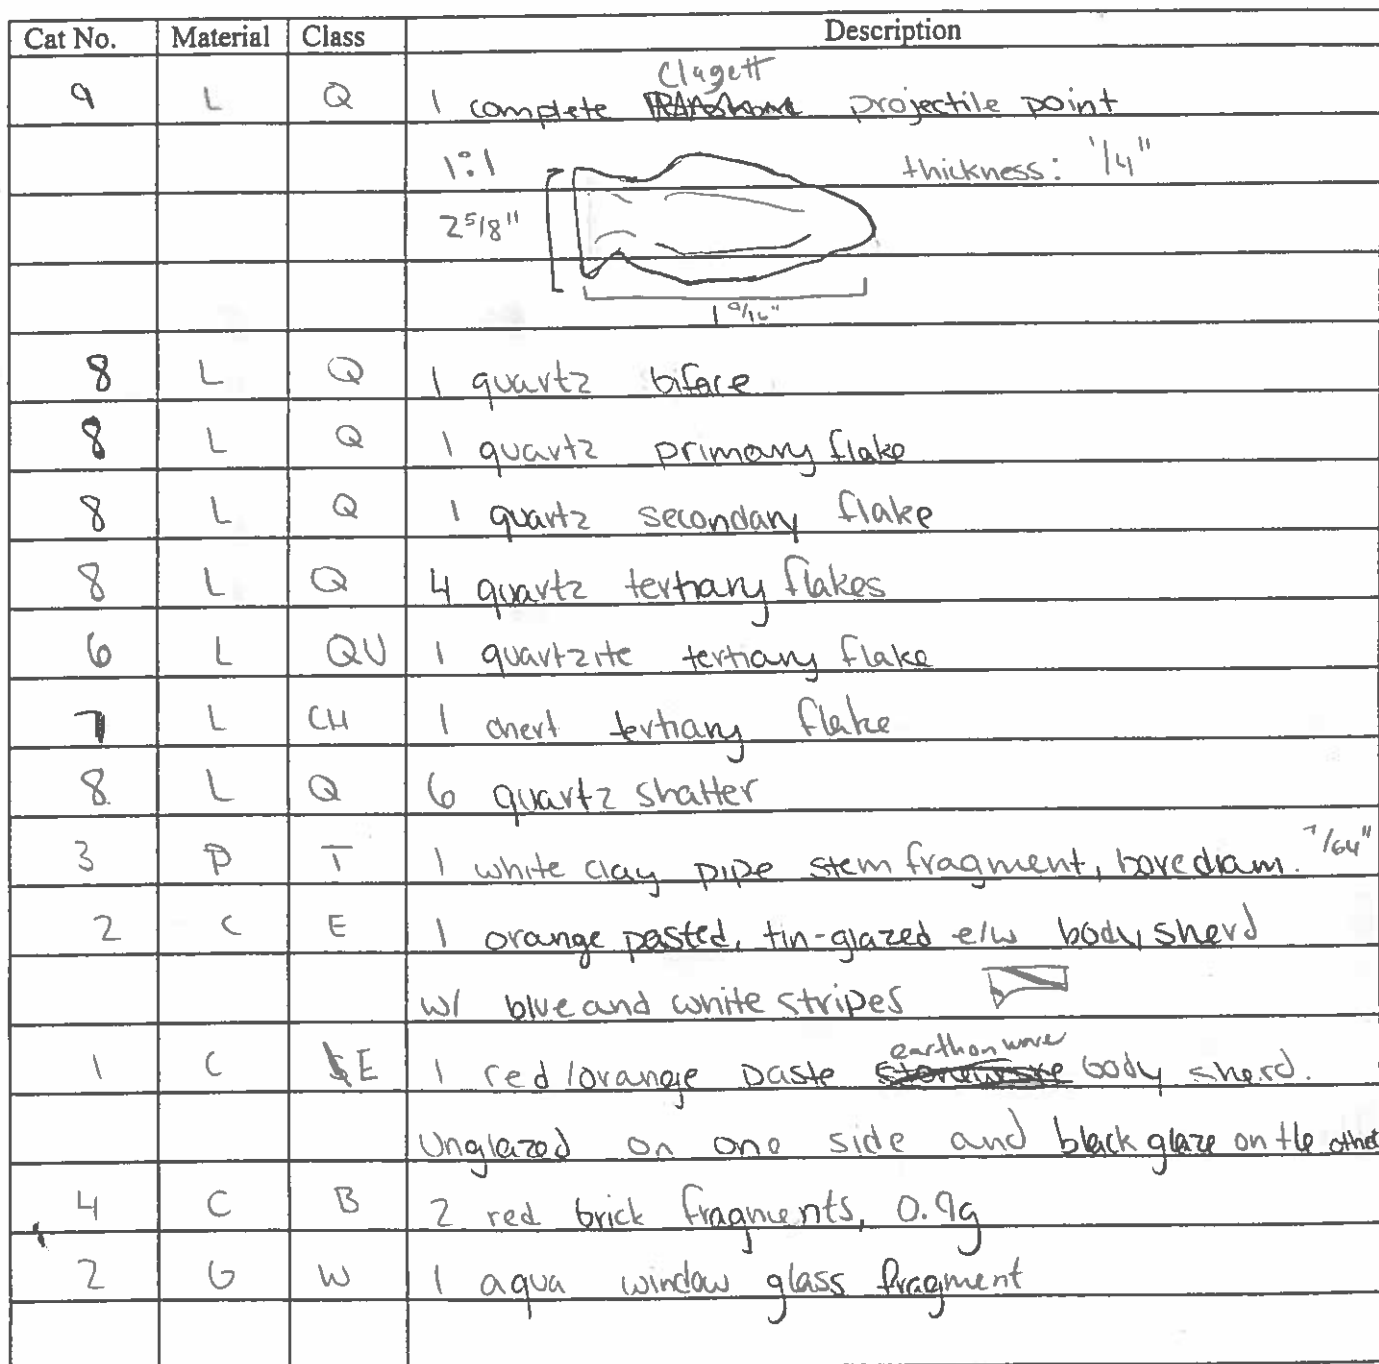 Cat No. Material Class Description
Clagett
9 L Q 1 complete projectile point
1:1 thickness: 1/4"
2 5/8"
1 9/16"
8 L Q 1 quartz biface
8 L Q 1 quartz primary flake
8 L Q 1 quartz secondary flake
8 L Q 4 quartz tertiary flakes
6 L QU 1 quartzite tertiary flake
7 L CH 1 chert tertiary flake
8 L Q 6 quartz shatter
3 P T 1 white clay pipe stem fragment, bore diam. 7/64"
2 C E 1 orange pasted, tin-glazed e/w body sherd
w/ blue and white stripes
earthenware
1 C E 1 red/orange paste stoneware body sherd.
Unglazed on one side and black glaze on the other
4 C B 2 red brick fragments, 0.9g
2 G W 1 aqua window glass fragment